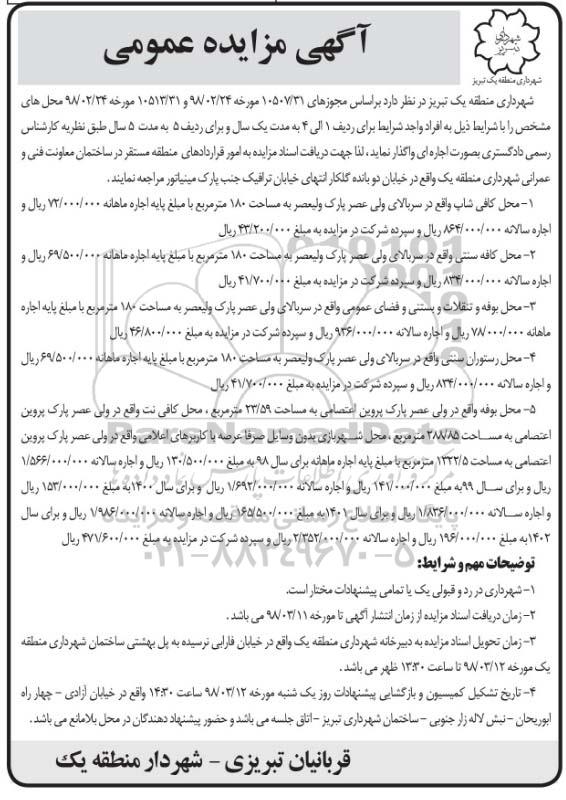 آگهی مزایده عمومی
شهرداری تبریز
شهرداری منطقه یک تبریز
شهرداری منطقه یک تبریز در نظر دارد براساس مجوزهای ۱۰۵۰۷/۳۱ مورخه ۹۸/۰۲/۲۴ و ۱۰۵۱۳/۳۱ مورخه ۹۸/۰۲/۲۴ محل های
مشخص را با شرایط ذیل به افراد واجد شرایط برای ردیف ۱ الی ۴ به مدت یک سال و برای ردیف ۵ به مدت ۵ سال طبق نظریه کارشناس
رسمی دادگستری بصورت اجاره ای واگذار نماید ، لذا جهت دریافت اسناد مزایده به امور قراردادهای منطقه مستقر در ساختمان معاونت فنی و
عمرانی شهرداری منطقه یک واقع در خیابان دو بانده گلکار انتهای خیابان ترافیک جنب پارک مینیاتور مراجعه نمایند .
۱- محل کافی شاپ واقع در سربالای ولی عصر پارک ولیعصر به مساحت ۱۸۰ مترمربع با مبلغ پایه اجاره ماهانه ۷۲/۰۰۰/۰۰۰ ریال و
اجاره سالانه ۸۶۴/۰۰۰/۰۰۰ ریال و سپرده شرکت در مزایده به مبلغ ۴۳/۲۰۰/۰۰۰ ریال
۲- محل کافه سنتی واقع در سربالای ولی عصر پارک ولیعصر به مساحت ۱۸۰ مترمربع با مبلغ پایه اجاره ماهانه ۶۹/۵۰۰/۰۰۰ ریال و
اجاره سالانه ۸۳۴/۰۰۰/۰۰۰ ریال و سپرده شرکت در مزایده به مبلغ ۴۱/۷۰۰/۰۰۰ ریال
۳- محل بوفه و تنقلات و بستنی و فضای عمومی واقع در سربالای ولی عصر پارک ولیعصر به مساحت ۱۸۰ مترمربع با مبلغ پایه اجاره
ماهانه ۷۸/۰۰۰/۰۰۰ ریال و اجاره سالانه ۹۳۶/۰۰۰/۰۰۰ ریال و سپرده شرکت در مزایده به مبلغ ۴۶/۸۰۰/۰۰۰ ریال
۴- محل رستوران سنتی واقع در سربالای ولی عصر پارک ولیعصر به مساحت ۱۸۰ مترمربع با مبلغ پایه اجاره ماهانه ۶۹/۵۰۰/۰۰۰ ریال
و اجاره سالانه ۸۳۴/۰۰۰/۰۰۰ ریال و سپرده شرکت در مزایده به مبلغ ۴۱/۷۰۰/۰۰۰ ریال
۵- محل بوفه واقع در ولی عصر پارک پروین اعتصامی به مساحت ۲۳/۵۹ مترمربع ، محل کافی نت واقع در ولی عصر پارک پروین
اعتصامی به مساحت ۲۸۷/۸۵ مترمربع ، محل شهربازی بدون وسایل صرفا عرصه با کاربرهای اعلامی واقع در ولی عصر پارک پروین
اعتصامی به مساحت ۱۳۲۲/۵ مترمربع با مبلغ پایه اجاره ماهانه برای سال ۹۸ به مبلغ ۱۳۰/۵۰۰/۰۰۰ ریال و اجاره سالانه ۱/۵۶۶/۰۰۰/۰۰۰
ریال و برای سال ۹۹ به مبلغ ۱۴۱/۰۰۰/۰۰۰ ریال و اجاره سالانه ۱/۶۹۲/۰۰۰/۰۰۰ ریال و برای سال ۱۴۰۰ به مبلغ ۱۵۳/۰۰۰/۰۰۰ ریال
و اجاره سالانه ۱/۸۳۶/۰۰۰/۰۰۰ ریال و برای سال ۱۴۰۱ به مبلغ ۱۶۵/۵۰۰/۰۰۰ ریال و اجاره سالانه ۱/۹۸۶/۰۰۰/۰۰۰ ریال و برای سال
۱۴۰۲ به مبلغ ۱۹۶/۰۰۰/۰۰۰ ریال و اجاره سالانه ۲/۳۵۲/۰۰۰/۰۰۰ ریال و سپرده شرکت در مزایده به مبلغ ۴۷۱/۶۰۰/۰۰۰ ریال
توضیحات مهم و شرایط:
۱- شهرداری در رد و قبولی یک یا تمامی پیشنهادات مختار است.
۲- زمان دریافت اسناد مزایده از زمان انتشار آگهی تا مورخه ۹۸/۰۳/۱۱ می باشد .
۳- زمان تحویل اسناد مزایده به دبیرخانه شهرداری منطقه یک واقع در خیابان فارابی نرسیده به پل بهشتی ساختمان شهرداری منطقه
یک مورخه ۹۸/۰۳/۱۲ تا ساعت ۱۳:۳۰ ظهر می باشد .
۴- تاریخ تشکیل کمیسیون و بازگشایی پیشنهادات روز یک شنبه مورخه ۹۸/۰۳/۱۲ ساعت ۱۴:۳۰ واقع در خیابان آزادی - چهار راه
ابوریحان - نبش لاله زار جنوبی - ساختمان شهرداری تبریز - اتاق جلسه می باشد و حضور پیشنهاد دهندگان در محل بلامانع می باشد .
قربانیان تبریزی - شهردار منطقه یک
ParsNamadData
۰۲۱-۸۸۳۴۹۶۷۰-۵